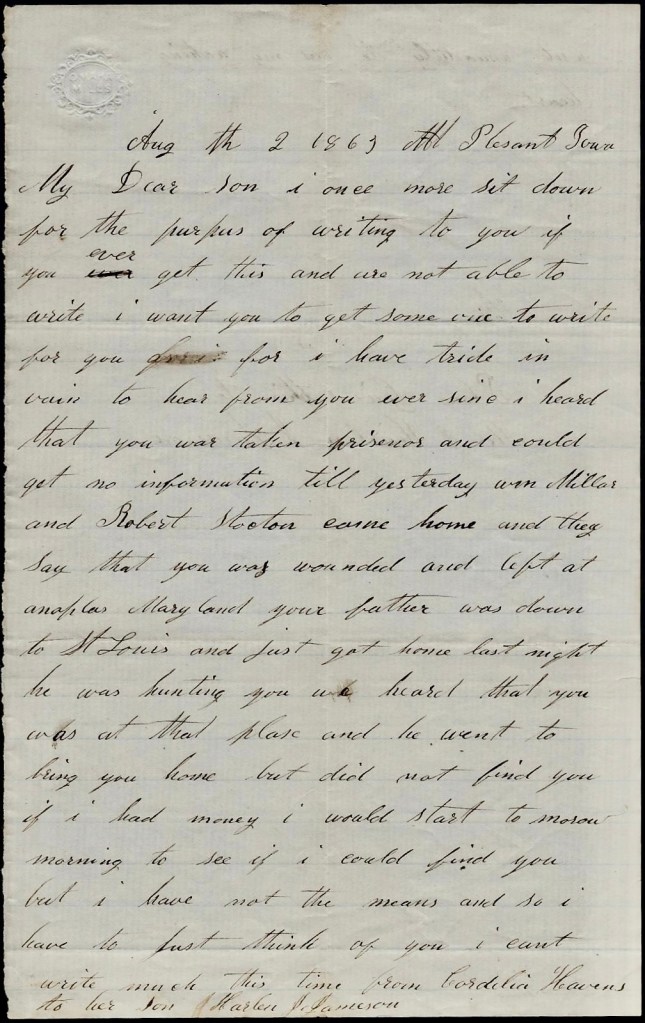 Aug th 2 1863 Mt Plesant Iowa
My Dear son i once more sit down
for the purpus of writing to you if
ever
you get this and are not able to
write i want you to get some one to write
for you for i have tride in
vain to hear from you ever sine i heard
that you was taken prisenor and could
get no information till yesterday wm Millar
and Robert Stocton came home and they
say that you was wounded and left at
anaplas Maryland your father was down
to St Louis and just got home last night
he was hunting you we heard that you
was at that plase and he went to
bring you home but did not find you
if i had money i would start to morow
morning to see if i could find you
but i have not the means and so i
have to just think of you i cant
write much this time from Cordelia Havens
to her son Harlen J Jameson